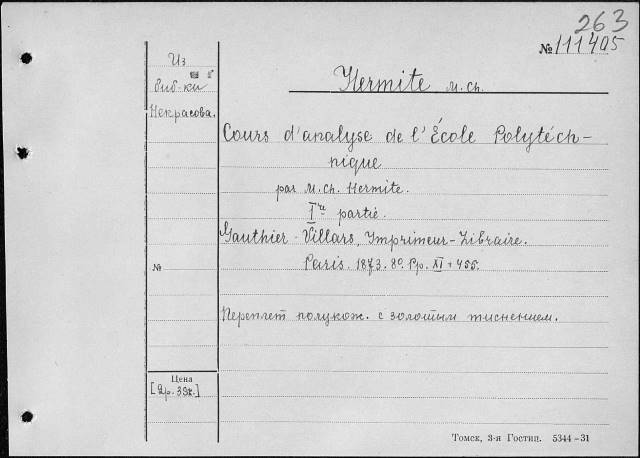 263
№111405
Из
биб-ки
Некрасова.
Hermite M. Ch.
Cours d'analyse de l'École Polytéch-
nique
par M. Ch. Hermite.
I re partie.
Gauthier-Villars, Imprimeur-Libraire.
Paris. 1873. 8º. Pp. XI + 455.
№
Переплет полукож. с золотым тиснением.
Цена
Томск, 3-я Гостип. 5344-31